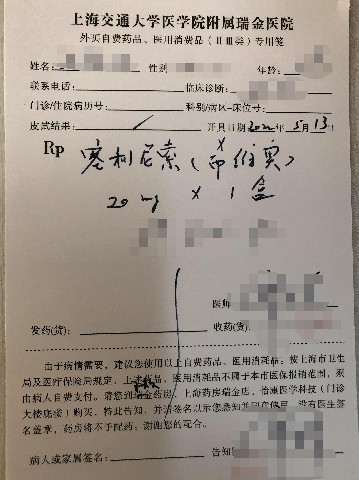 上海交通大学医学院附属瑞金医院
外买自费药品、医用消费品（ⅡⅢ类）专用笺
姓名： 性别 年龄：
联系电话： 临床诊断：
门诊/住院病历号： 科别/病区-床位号：
皮试结果： / 开具日期2022年5月13
Rp 塞利尼索（希维奥）
20mg × 1盒
医师
发药(货)： 收药(货)：
由于病情需要，建议您使用以上自费药品、医用消耗品。按上海市卫生
局及医疗保险局规定，上述药品、医用消耗品不属于本市医保报销范围，须
由病人自费支付。请您到瑞金药房、上海药房瑞金店、怡康医学科技（门诊
大楼底楼）购买，特此告知，并请签名以示您悉知并同意使用。没有医生签
名盖章，药房将不予配药。谢谢您的配合。
病人或家属签名： 告知